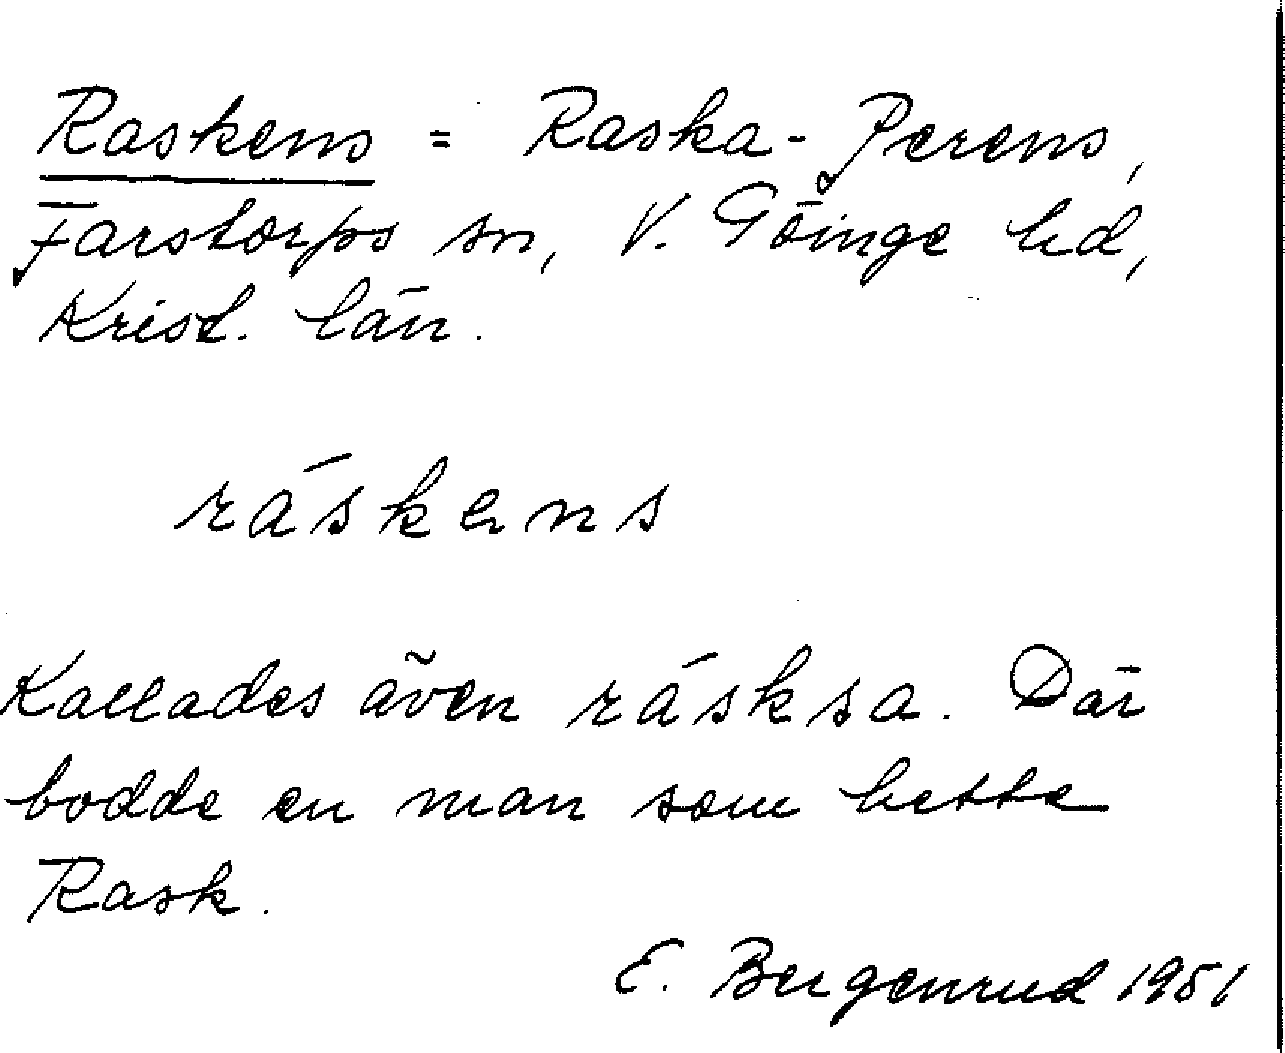 Raskens = Raska-Perens,
Farstorps sn, V. Göinge hd,
Krist. län.
ráskens
Kallades även rásksa. Där
bodde en man som hette
Rask.
E. Bergenrud 1951